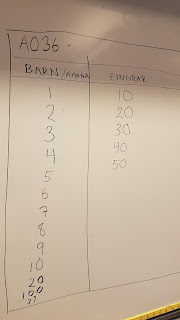 A036
BARN/ FINGRAR
1 10
2 20
3 30
4 40
5 50
6
7
8
9
10
20
100